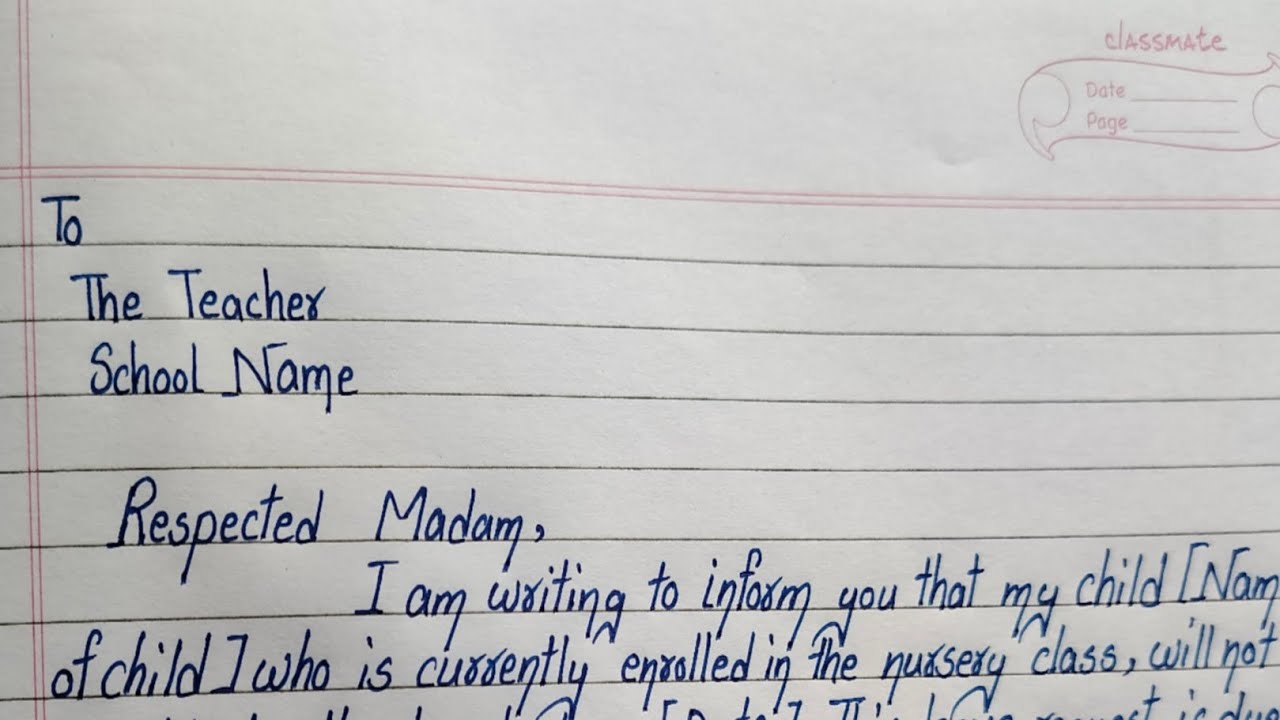 classmate
Date
Page
To
The Teacher
School Name
Respected Madam,
I am writing to inform you that my child [Nam
of child] who is currently enrolled in the nursery class, will not